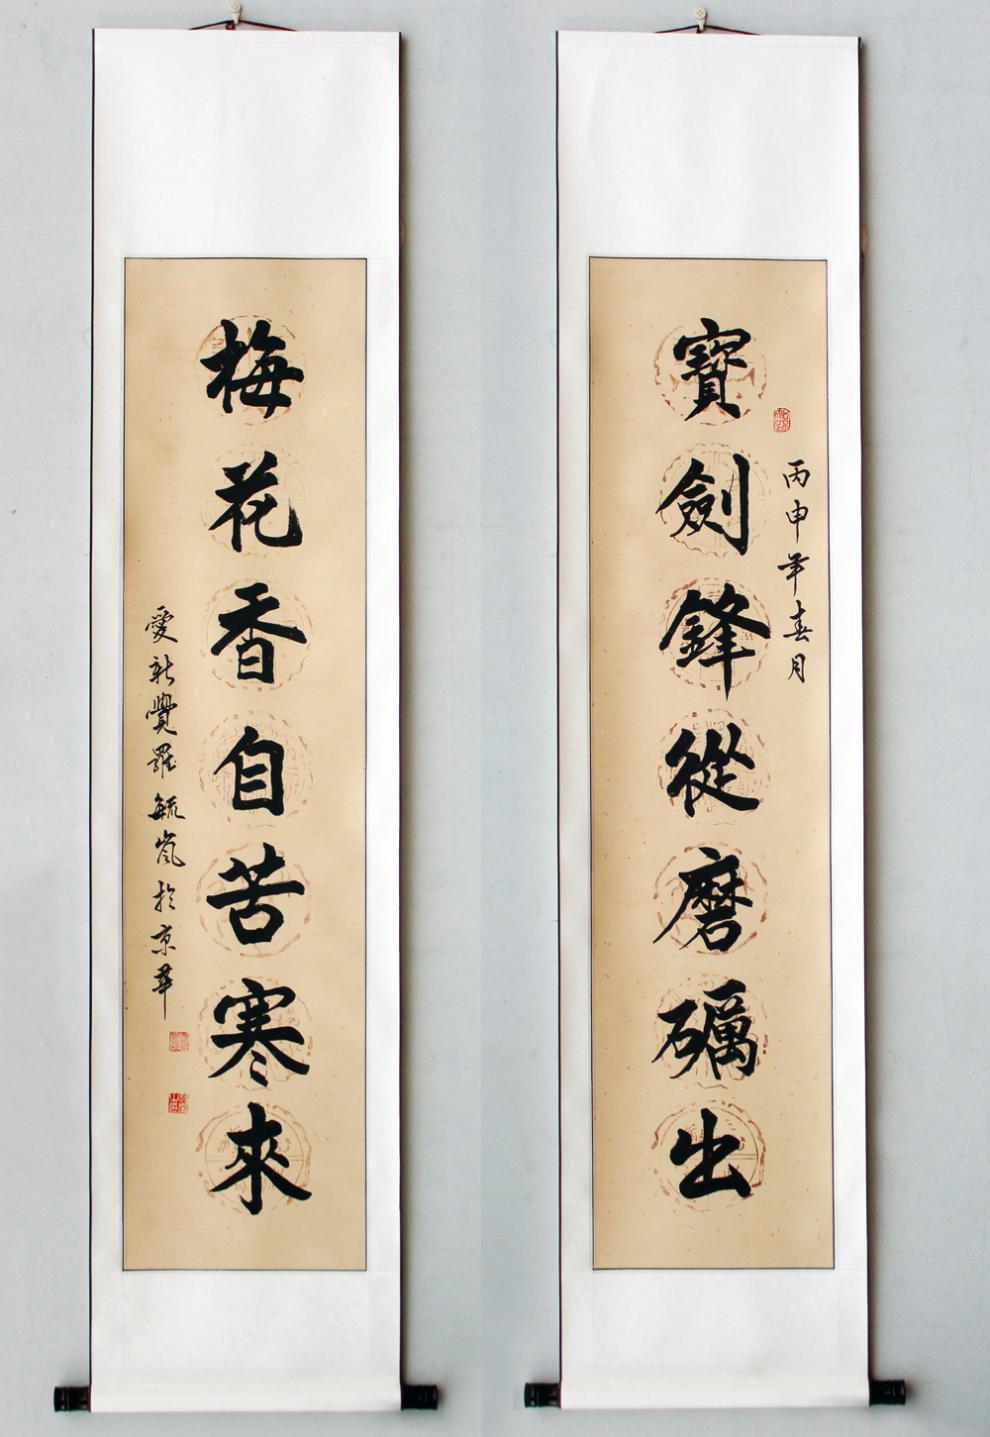 寶劍鋒從磨礪出
丙申年春月
梅花香自苦寒來
愛新覺羅毓嵐於京華